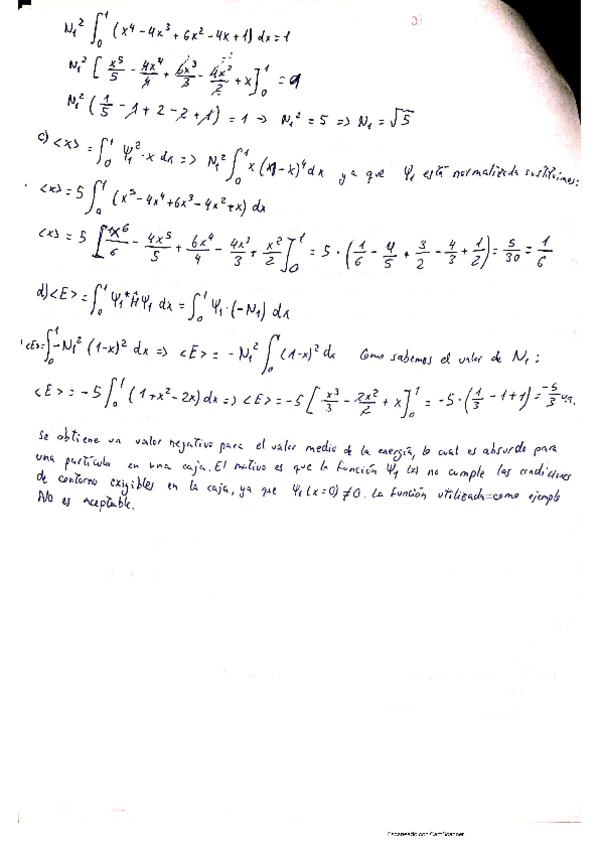 N₁² ∫₀¹ (x⁴ - 4x³ + 6x² - 4x + 1) dx = 1
N₁² [x⁵/5 - 4x⁴/4 + 6x³/3 - 4x²/2 + x]₀¹ = 1
N₁² (1/5 - 1 + 2 - 2 + 1) = 1 → N₁² = 5 => N₁ = √5
c) <x> = ∫₀¹ Ψ₁² · x dx => N₁² ∫₀¹ x (1-x)⁴ dx ya que Ψ₁ está normalizada sustituimos:
<x> = 5 ∫₀¹ (x⁵ - 4x⁴ + 6x³ - 4x² + x) dx
<x> = 5 [1x⁶/6 - 4x⁵/5 + 6x⁴/4 - 4x³/3 + x²/2]₀¹ = 5 · (1/6 - 4/5 + 3/2 - 4/3 + 1/2) = 5/30 = 1/6
d) <E> = ∫₀¹ Ψ₁* Ĥ Ψ₁ dx = ∫₀¹ Ψ₁ · (-N₁) dx
<E> = ∫₀¹ -N₁² (1-x)² dx => <E> = -N₁² ∫₀¹ (1-x)² dx Como sabemos el valor de N₁:
<E> = -5 ∫₀¹ (1 + x² - 2x) dx => <E> = -5 [x³/3 - 2x²/2 + x]₀¹ = -5 · (1/3 - 1 + 1) = -5/3 u.a.
Se obtiene un valor negativo para el valor medio de la energía, lo cual es absurdo para
una partícula en una caja. El motivo es que la función Ψ₁(x) no cumple las condiciones
de contorno exigibles en la caja, ya que Ψ₁(x=0) ≠ 0. La función utilizada como ejemplo
No es aceptable.
Escaneado con CamScanner